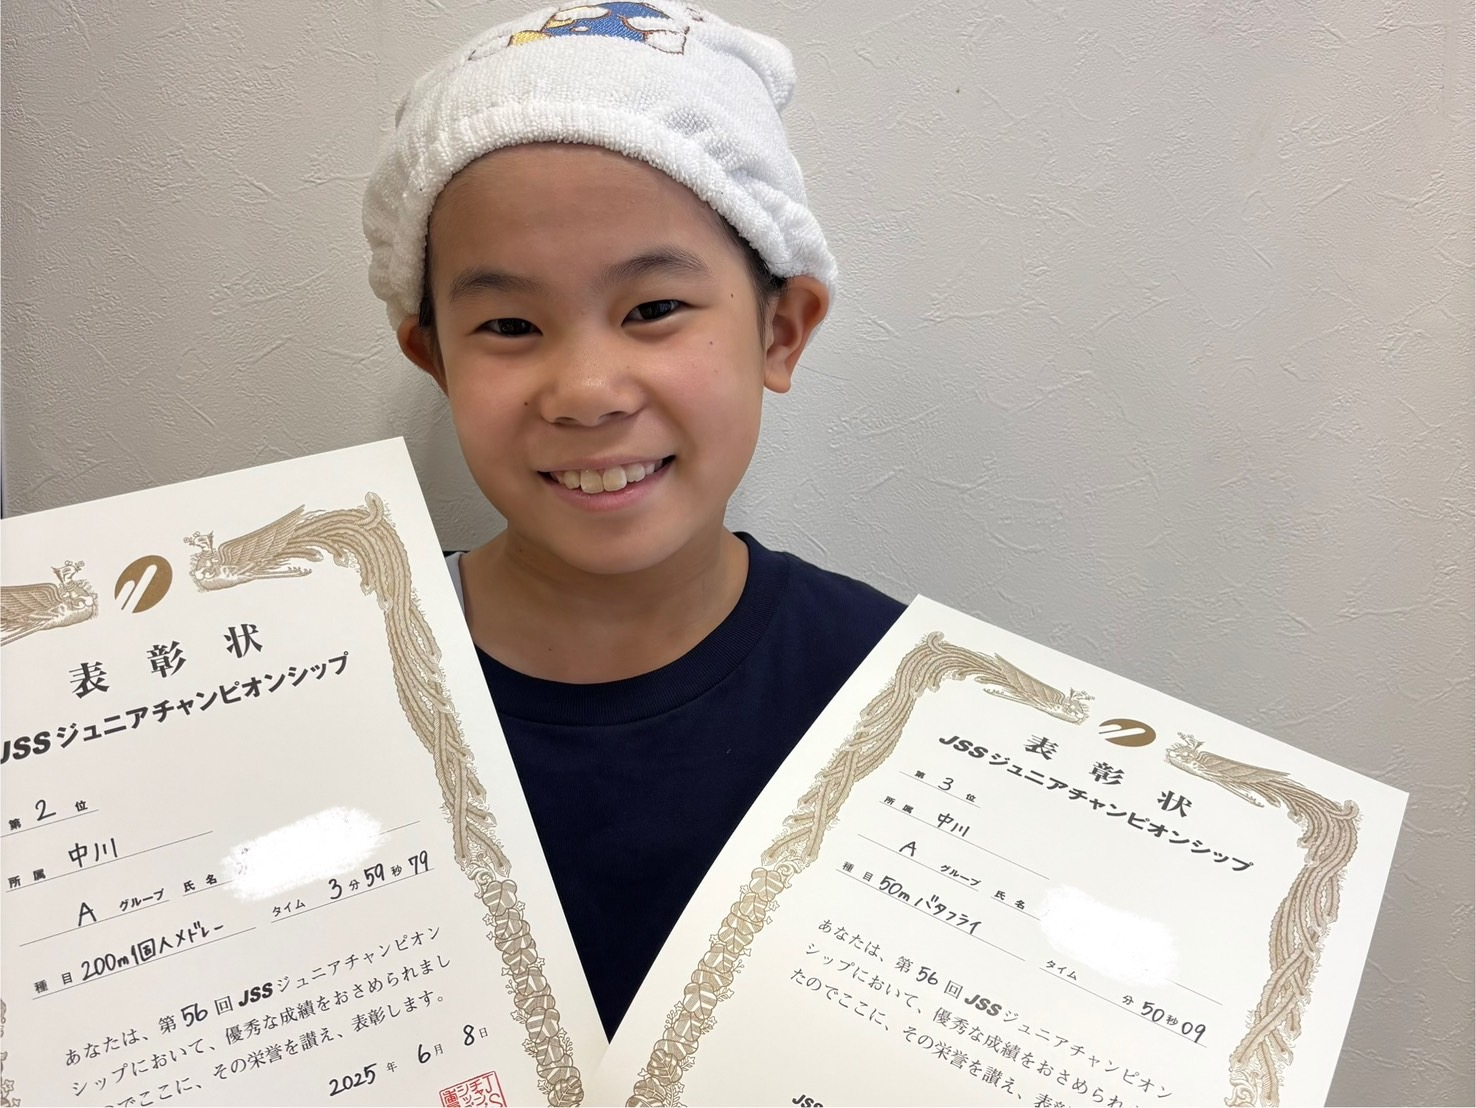 表彰状
JSSジュニアチャンピオンシップ
第2位
所属 中川
Aグループ 氏名
タイム 3分59秒79
種目 200m個人メドレー
あなたは、第56回JSSジュニアチャンピオン
シップにおいて、優秀な成績をおさめられまし
たのでここに、その栄誉を讃え、表彰します。
2025年6月8日
表彰状
JSSジュニアチャンピオンシップ
第3位
所属 中川
Aグループ 氏名
種目 50mバタフライ
タイム 分50秒09
あなたは、第56回JSSジュニアチャンピオン
シップにおいて、優秀な成績をおさめられまし
たのでここに、その栄誉を讃え、表彰
JSS